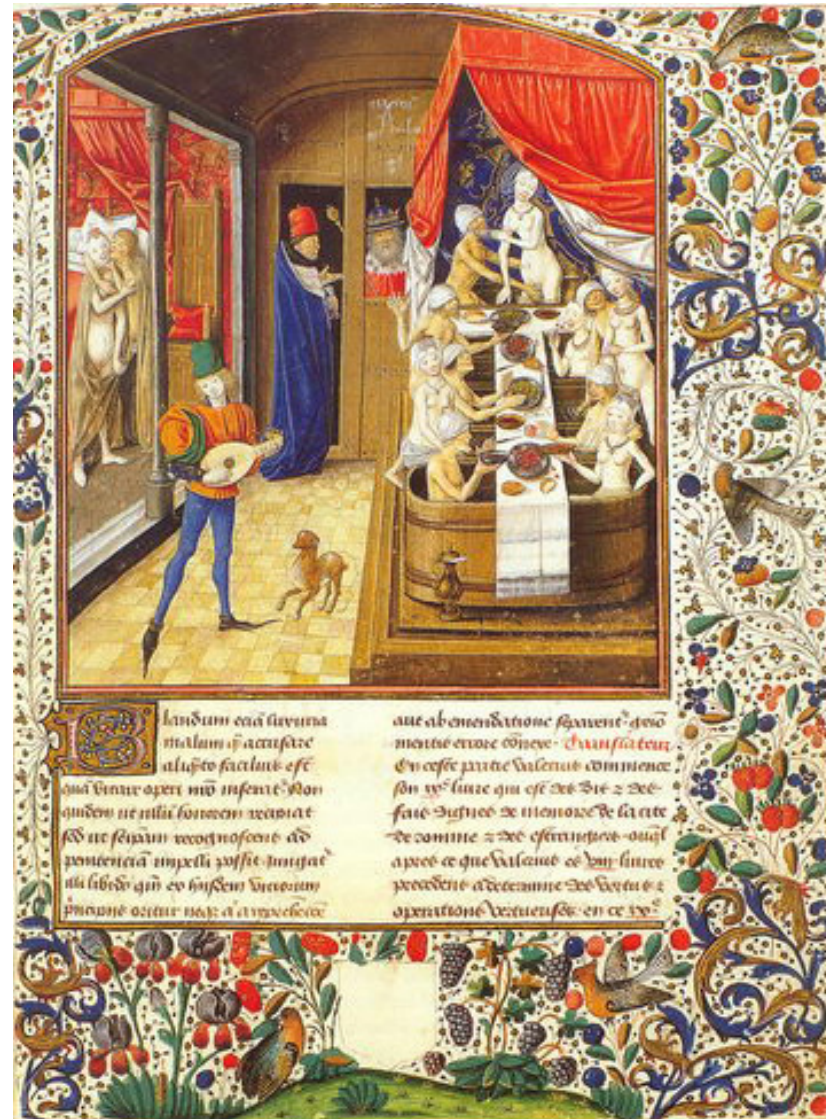 Blandum eciā luxuria
malum qͥ accusare
aliqͣto facilius est
quā vitare operi nr̄o inserat᷑ Non
quidem ut ullū honorem recipiat
sed ut seipam recognoscens ad
penitenciā impelli possit Jungat᷑
illi libido
principiis oritur neqꝫ a
aut ab emendatione separent᷑
mentis errore cōnexe Translateur
En ceste partie Valerius commence
son livre qui est des dis ⁊ des
fais dignes de memoire de la cite
de romme ⁊ des estrangiers ouql
apres ce que Valerius es viii livres
precedens a determine des vertus ⁊
operations vertueuses en ce